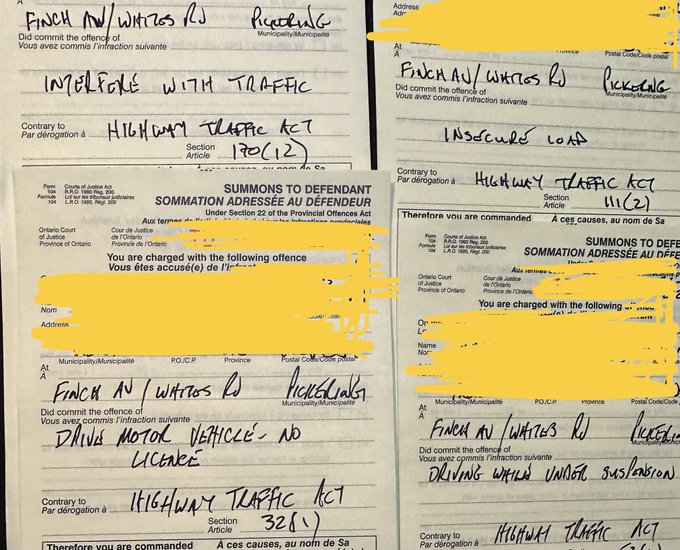 FINCH AV/WHITES RD PICKERING
Municipality/Municipalité
Did commit the offence of
Vous avez commis l'infraction suivante
INTERFERE WITH TRAFFIC
Contrary to
Par dérogation à
HIGHWAY TRAFFIC ACT
Section
Article
170(12)
Address
Adres
Province Postal Code/Code postal
At
À
FINCH AV/WHITES RD PICKERING
Municipality/Municipalité
Did commit the offence of
Vous avez commis l'infraction suivante
INSECURE LOAD
Contrary to
Par dérogation à
HIGHWAY TRAFFIC ACT
Section
Article
111(2)
Therefore you are commanded À ces causes, au nom de Sa
Form 104 Courts of Justice Act
R.R.O. 1990 Reg. 200
Formule 104 Loi sur les tribunaux judiciaires
L.R.O. 1990, Régl. 200
SUMMONS TO DEFENDANT
SOMMATION ADRESSÉE AU DÉFENDEUR
Under Section 22 of the Provincial Offences Act
Aux termes de
Ontario Court of Justice
Province of Ontario
Cour de Justice de l'Ontario
Province de l'Ontario
You are charged with the following offence
Vous êtes accusé(e) de l'infra
Nom
Address
Municipality/Municipalité P.O./C.P. Province Postal Code/Code postal
At
À
FINCH AV/WHITES RD PICKERING
Municipality/Municipalité
Did commit the offence of
Vous avez commis l'infraction suivante
DRIVE MOTOR VEHICLE - NO
LICENCE
Contrary to
Par dérogation à
HIGHWAY TRAFFIC ACT
Section
Article
32(1)
Therefore you are commanded À ces causes, au nom de Sa
Form 104 Courts of Justice Act
R.R.O. 1990 Reg. 200
Formule 104 Loi sur les tribunaux judiciaires
L.R.O. 1990, Régl. 200
SUMMONS TO DEFENDA
SOMMATION ADRESSÉE AU DÉFE
Under Section 22 of the Provincial Offences
Aux termes
Ontario Court of Justice
Province of Ontario
Cour de Justice de l'Ontario
Province de l'Ontario
You are charged with the following
Name
Nom
Municipality/Municipalité P.O./C.P. Province Postal Code/Code
At
À
FINCH AV/WHITES RD
Did commit the offence of
Vous avez commis l'infraction suivante
DRIVING WHILE UNDER SUSPENSION
Contrary to
Par dérogation à
HIGHWAY TRAFFIC ACT